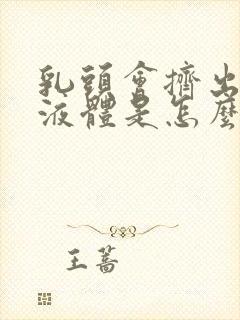 乳頭會擠出
液體是怎麼
王蕎